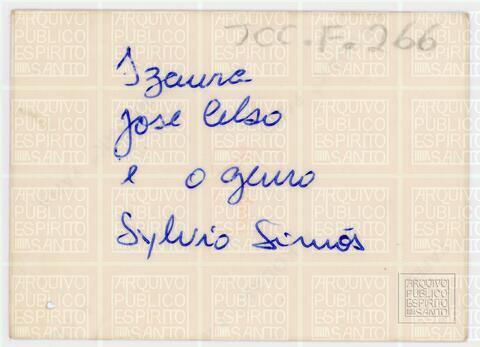 JCC-F.266
Izaura
José Celso
e o genro
Sylvio Simões
ARQUIVO
PÚBLICO
ESPÍRITO
SANTO